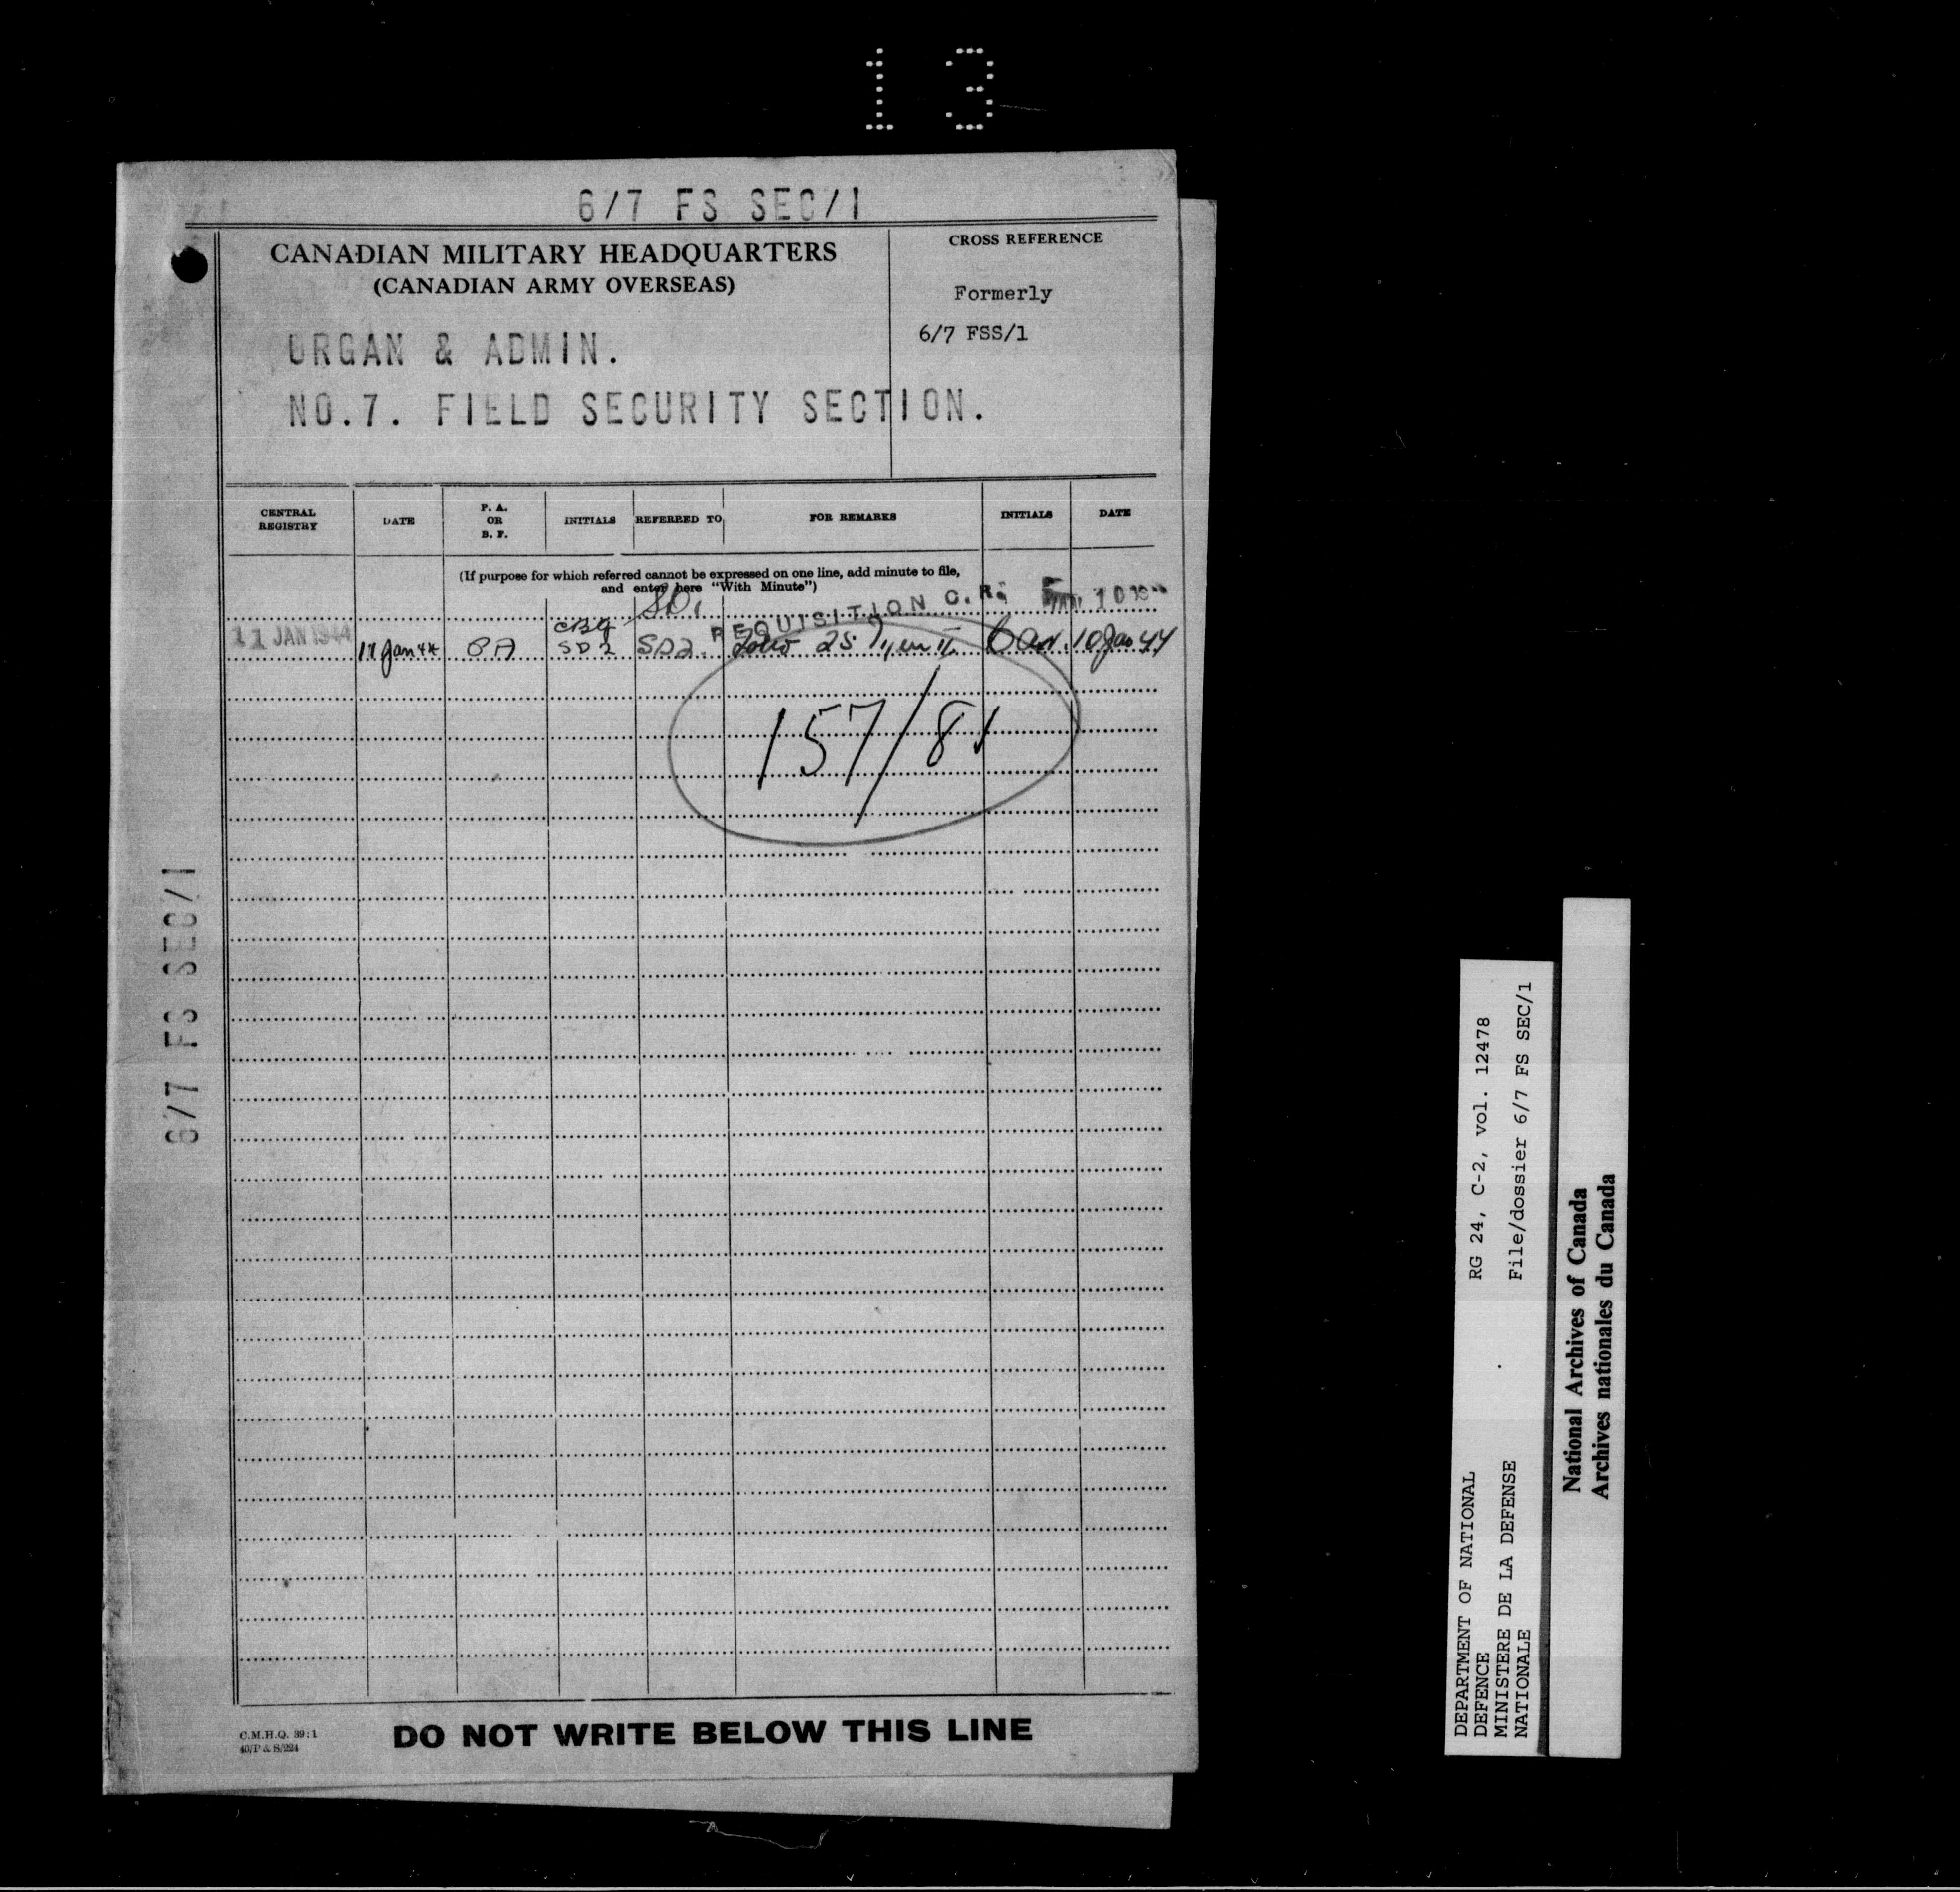 13
6/7 FS SEC/1
CANADIAN MILITARY HEADQUARTERS
(CANADIAN ARMY OVERSEAS)
CROSS REFERENCE
Formerly
6/7 FSS/1
ORGAN & ADMIN.
NO.7. FIELD SECURITY SECTION.
CENTRAL REGISTRY
DATE
P. A. OR B. F.
INITIALS
REFERRED TO
FOR REMARKS
INITIALS
DATE
(If purpose for which referred cannot be expressed on one line, add minute to file,
and enter here "With Minute")
REQUISITION C.R. 10
11 JAN 1944 11 Jan 44 PA SD2 SD2. 25 10 Jan 44
157/81
6/7 FS SEC/1
C.M.H.Q. 39:1
40/P & S/224
DO NOT WRITE BELOW THIS LINE
DEPARTMENT OF NATIONAL
DEFENCE
MINISTERE DE LA DEFENSE
NATIONALE
RG 24, C-2, vol. 12478
File/dossier 6/7 FS SEC/1
National Archives of Canada
Archives nationales du Canada